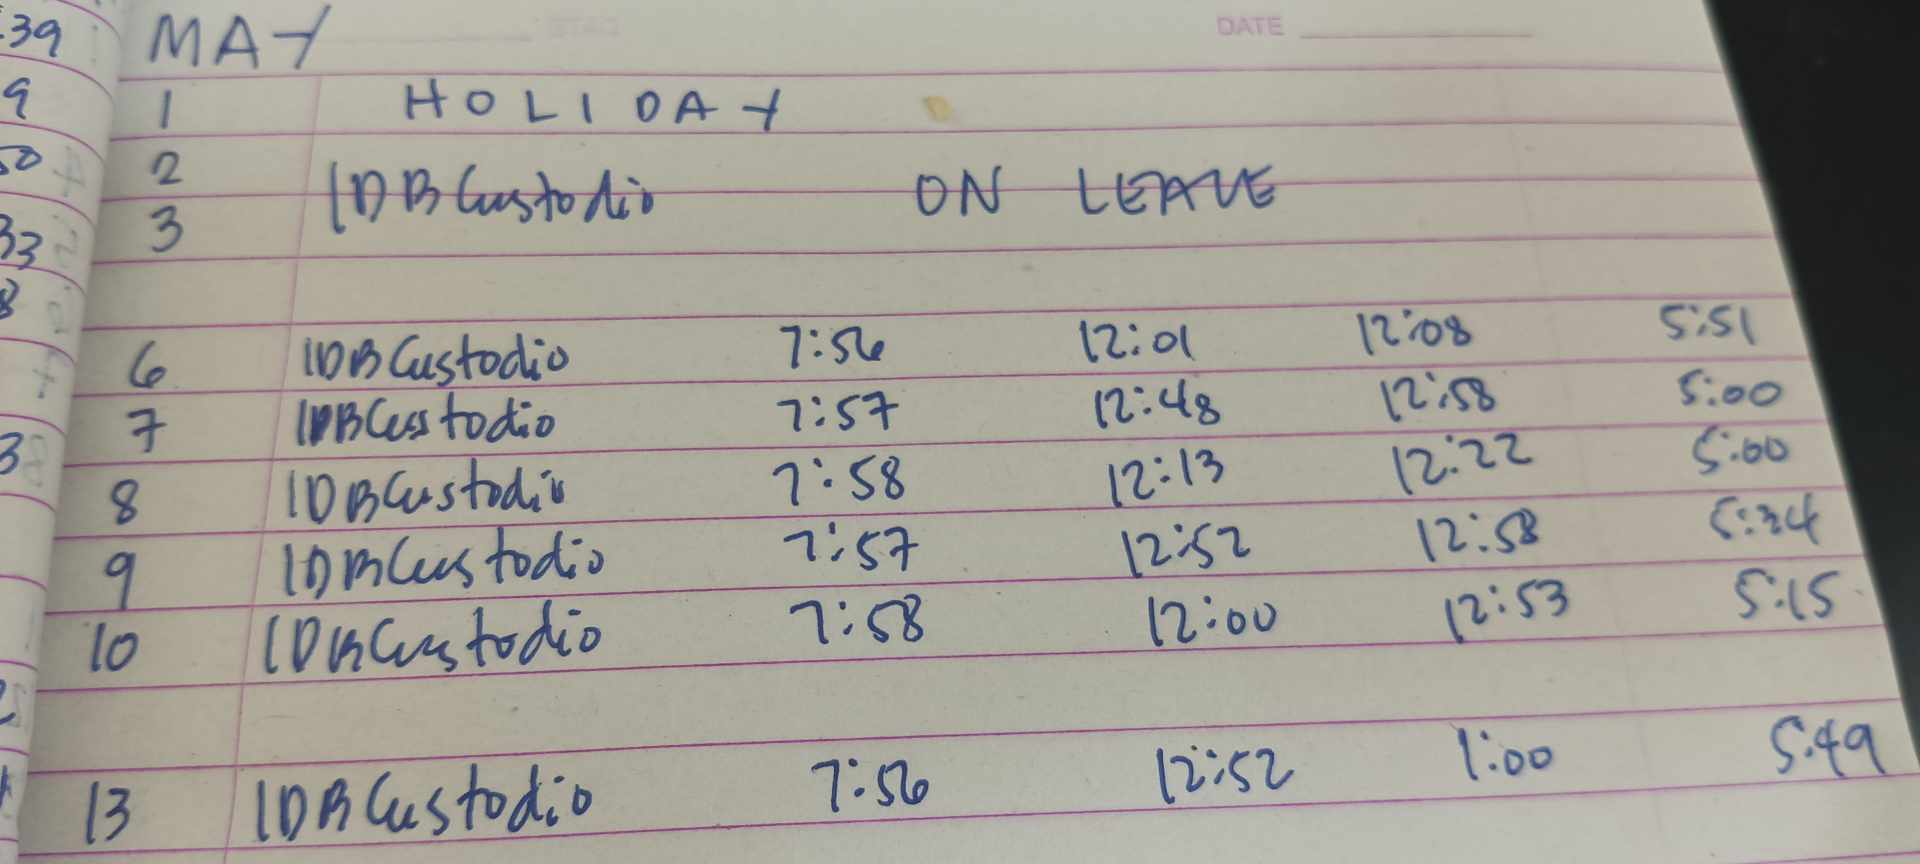 MAY DATE
1 HOLIDAY
2
IDBCustodio ON LEAVE
3
6 IDBCustodio 7:56 12:01 12:08 5:51
7 IDBCustodio 7:57 12:48 12:58 5:00
8 IDBCustodio 7:58 12:13 12:22 5:00
9 IDBCustodio 7:57 12:52 12:58 5:34
10 IDBCustodio 7:58 12:00 12:53 5:15
13 IDBCustodio 7:56 12:52 1:00 5:49